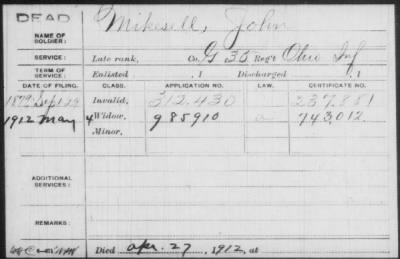 DEAD
NAME OF SOLDIER: Mikesell, John
SERVICE: Late rank, Co. G 35 Reg't Ohio Inf
TERM OF SERVICE: Enlisted , 1 Discharged , 1
DATE OF FILING. CLASS. APPLICATION NO. LAW. CERTIFICATE NO.
1879 Sept 29 Invalid, 312.430 237.851
1912 May 4 Widow, 985910 743,012.
Minor,
ADDITIONAL SERVICES:
REMARKS:
Died Apr. 27, 1912, at